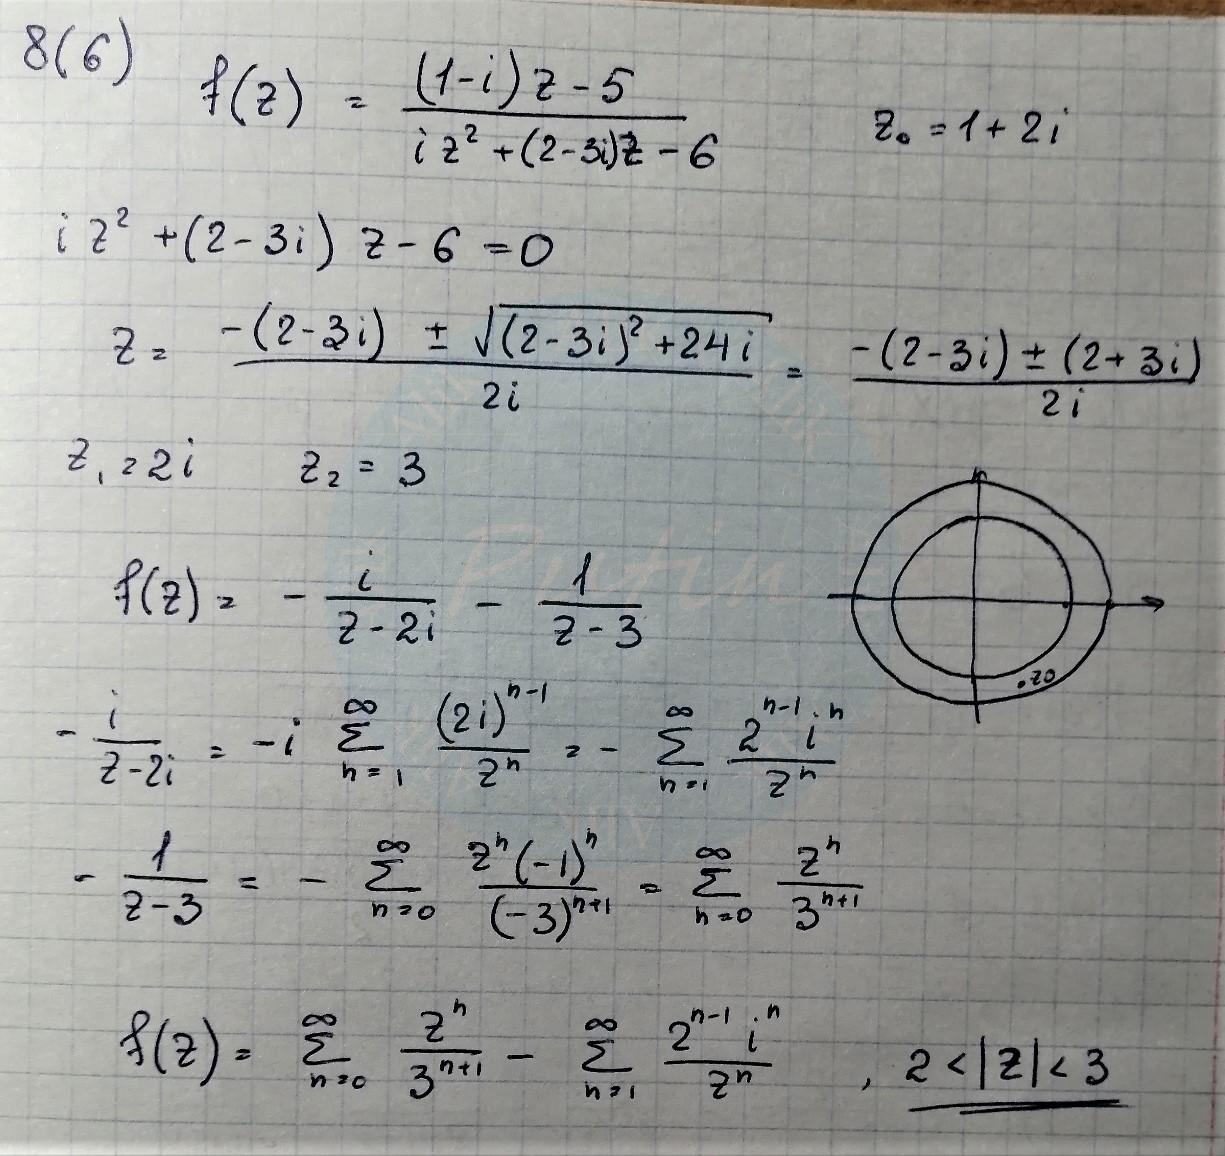 8(6)
f(z) = ((1-i)z - 5)/(iz² + (2-3i)z - 6)    z₀ = 1 + 2i
iz² + (2-3i) z - 6 = 0
z = (-(2-3i) ± √((2-3i)² + 24i))/(2i) = (-(2-3i) ± (2+3i))/(2i)
z₁ = 2i    z₂ = 3
f(z) = - i/(z-2i) - 1/(z-3)
.z0
- i/(z-2i) = -i ∑_{n=1}^{∞} (2i)^{n-1}/z^n = - ∑_{n=1}^{∞} 2^{n-1} i^n/z^n
- 1/(z-3) = - ∑_{n=0}^{∞} z^n(-1)^n/(-3)^{n+1} = ∑_{n=0}^{∞} z^n/3^{n+1}
f(z) = ∑_{n=0}^{∞} z^n/3^{n+1} - ∑_{n=1}^{∞} 2^{n-1} i^n/z^n , 2 < |z| < 3
Putin